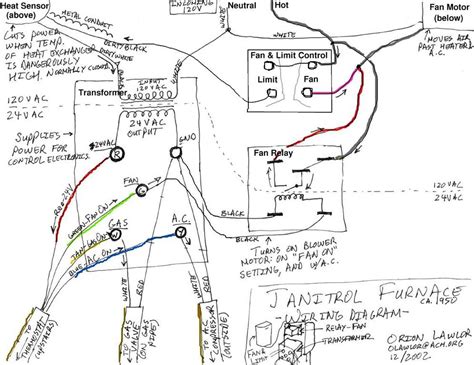 Heat Sensor
(above)
METAL CONDUIT
INCOMING
120V
Neutral
Hot
Fan Motor
(below)
CUTS POWER
WHEN TEMP.
OF HEAT EXCHANGER
IS DANGEROUSLY
HIGH. NORMALLY CLOSED
DIRTY BLACK
DIRTY WHITE
BLACK
WHITE
MOVES AIR
PAST HEATER &
A.C.
Fan & Limit Control
Limit
Fan
WHITE
Transformer
INPUT
120VAC
120VAC
24VAC
24VAC
OUTPUT
SUPPLIES
POWER FOR
CONTROL ELECTRONICS
R
GND
Fan Relay
120VAC
24VAC
RED-24V
FAN
GREEN-FAN ON
GAS
A.C.
TAN-GAS ON
BLUE-AC ON
W
Y
BLACK
BLACK
WHITE
WHITE
RED
WHITE
RED
TURNS ON BLOWER
MOTOR: ON "FAN ON"
SETTING, AND W/A.C.
TO
THERMOSTAT
(UPSTAIRS)
TO
GAS
VALVE
(ON GAS
PIPE)
TO A.C.
COMPRESSOR
(OUTSIDE)
JANITROL FURNACE
CA. 1950
-WIRING DIAGRAM-
RELAY-FAN
TRANSFORMER
FAN &
LIMIT
ORION LAWLOR
OLAWLOR@ACM.ORG
12/2002